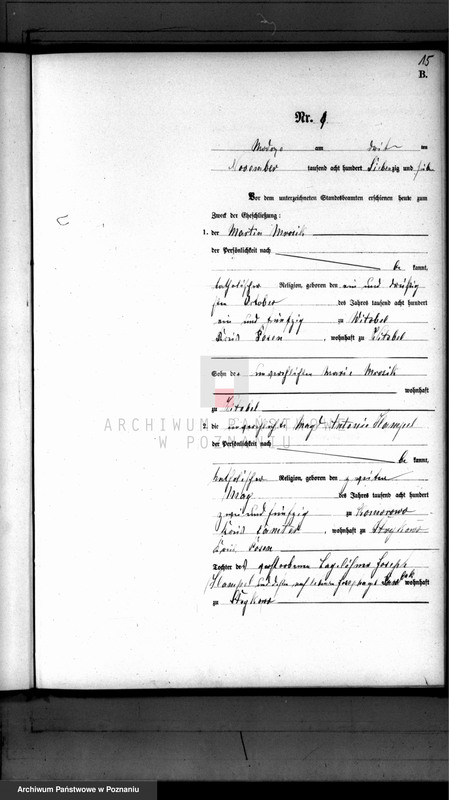 15
B.
Nr. 9
am
November tausend acht hundert Siebenzig und
Vor dem unterzeichneten Standesbeamten erschienen heute zum
Zweck der Eheschließung:
1. der Martin Mrozik
der Persönlichkeit nach
be kannt,
katholischer Religion, geboren den ein und dreißig
sten October des Jahres tausend acht hundert
ein und fünfzig zu Witobel
Kreis Posen, wohnhaft zu Witobel
Sohn der unverehelichten Marie Mrozik
wohnhaft
zu Witobel
ARCHIWUM PAŃSTWOWE
W POZNANIU
2. die Antonie Hampel
der Persönlichkeit nach
be kannt,
katholischer Religion, geboren den zweiten
May des Jahres tausend acht hundert
zwei und fünfzig zu Komorowo
Kreis Samter, wohnhaft zu Strykowo
Kreis Posen
Tochter des verstorbenen Tagelöhner Joseph
Hampel und dessen wohnhaft
zu Strykowo
Archiwum Państwowe w Poznaniu